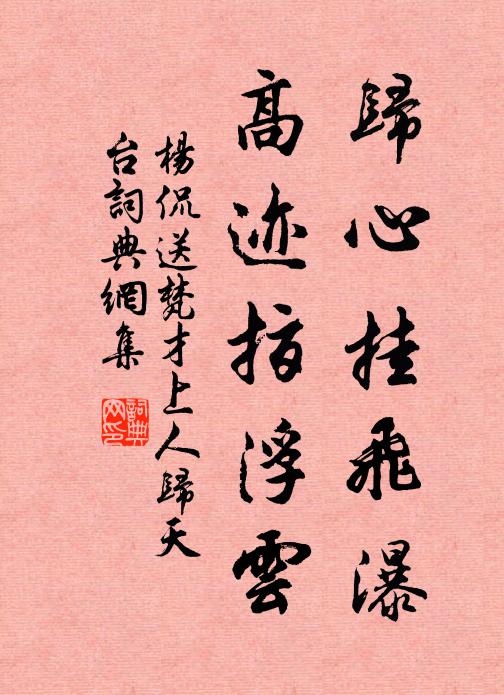 歸心挂飛瀑
高迹指浮雲
楊侃送梵才上人歸天
台詞典網集
詞典
网印